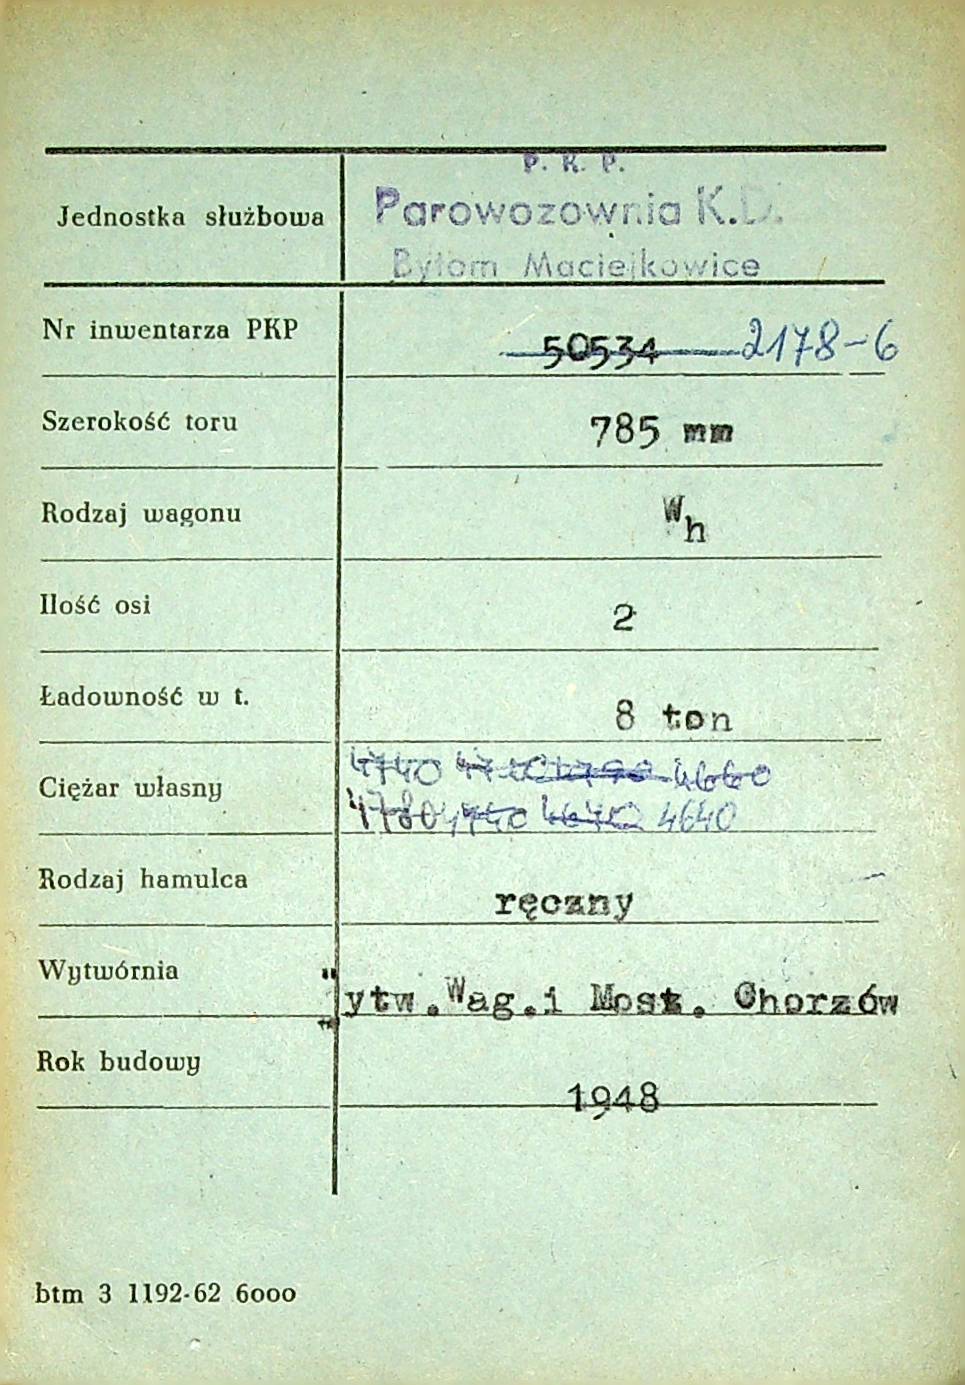 P. K. P.
Jednostka służbowa Parowozownia K.D.
Bytom Maciejkowice
Nr inwentarza PKP 50534 2178-6
Szerokość toru 785 mm
Rodzaj wagonu Wh
Ilość osi 2
Ładowność w t. 8 ton
4740 4660
Ciężar własny
4780 4740 4640 4640
Rodzaj hamulca ręczny
Wytwórnia "ytw.Wag.i Most. Chorzów
Rok budowy 1948
btm 3 1192-62 6000